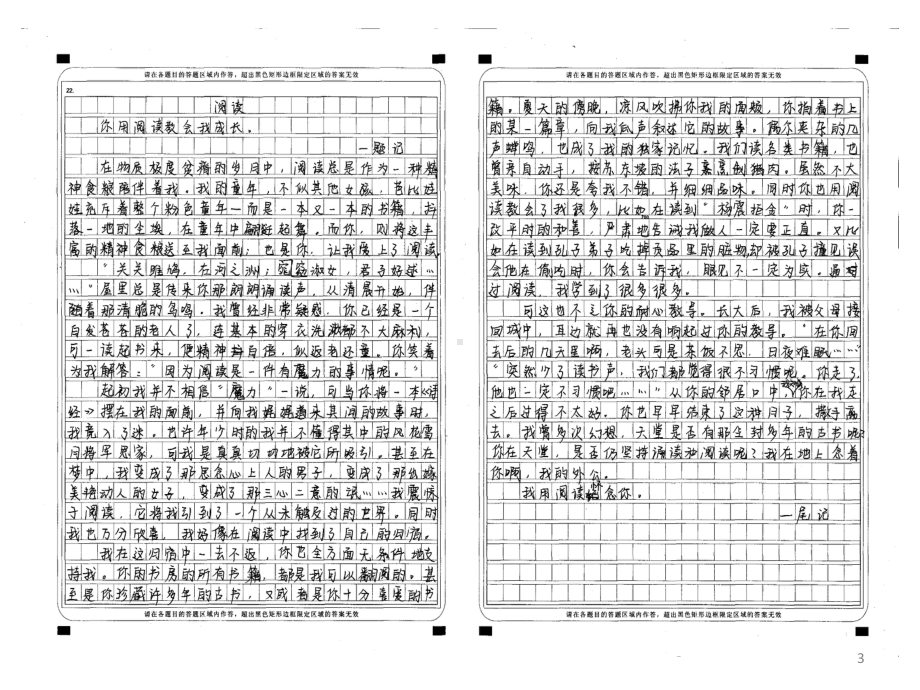 请在各题目的答题区域内作答，超出黑色矩形边框限定区域的答案无效
22.
阅读
你用阅读教会我成长。
—题记
在物质极度贫瘠的岁月中，阅读总是作为一种精
神食粮陪伴着我。我的童年，不似其他女孩，芭比娃
娃充斥着整个粉色童年—而是一本又一本的书籍，抖
落一地的尘埃，在童年中翩跹起舞。而你，则将这丰
富的精神食粮送至我面前；也是你，让我爱上了阅读。
“关关雎鸠，在河之洲；窈窕淑女，君子好逑……
…”屋里总是传来你那朗朗诵读声。从清晨开始，伴
随着那清脆的鸟鸣。我曾经非常疑惑，你已经是一个
白发苍苍的老人了，连基本的穿衣洗漱都不大麻利，
可一读起书来，便精神抖自倍，似返老还童。你笑着
为我解答：“因为阅读是一件有魔力的事情呢。”
起初我并不相信“魔力”一说，可当你将一本《诗
经》摆在我的面前，并向我娓娓道来其间的故事时，
我竟入了迷。也许年少时的我并不懂得其中的风花雪
月将军思家，可我是真真切切地被它所吸引。甚至在
梦中，我变成了那思念心上人的男子，变成了那幺嫁
美得动人的女子，变成了那三心二意的氓……我震惊
于阅读，它将我引到了一个从未触及过的世界。同时
我也万分欣喜，我好像在阅读中找到了自己的归宿。
我在这归宿中一去不返，你也全方面无条件地支
持我。你的书房的所有书籍，都是我可以翻阅的。甚
至是你珍藏许多年的古书，又或者是你十分喜爱的书
请在各题目的答题区域内作答，超出黑色矩形边框限定区域的答案无效
请在各题目的答题区域内作答，超出黑色矩形边框限定区域的答案无效
籍。夏天的傍晚，凉风吹拂你我的面颊，你指着书上
的某一篇章，向我低声叙述它的故事。偶尔夹杂的几
声蝉鸣，也成了我的独家记忆。我们读各类书籍，也
曾亲自动手，按苏东坡的法子烹烹制猪肉。虽然不大
美味，你还是夸我不错，并细细品味。同时你也用阅
读教会了我很多，比如在读到“杨震拒金”时，你一
改平时的和善，严肃地告诫我做人一定要正直。又比
如在读到孔子弟子吃掉贡品里的脏物却被孔子撞见误
会他在偷吃时，你会告诉我，眼见不一定为实。通过
过阅读，我学到了很多很多。
可这也不乏你的耐心教导。长大后，我被父母接
回城中，耳边就再也没有响起过你的教导。“在你回
去后的几天里啊，老头可是茶饭不思，日夜难眠……”
“突然少了读书声，我们都觉得很不习惯呢。你走了，
他也一定不习惯吧……”从你的邻居口中，你在我走
之后过得不太好。你也早早结束了这种日子，撒手离
去。我曾多次幻想，天堂是否有那尘封多年的古书呢？
你在天堂，是否仍坚持诵读和阅读呢？我在地上念着
你啊，我的外公。
我用阅读怀念你。
—尾记
请在各题目的答题区域内作答，超出黑色矩形边框限定区域的答案无效
3